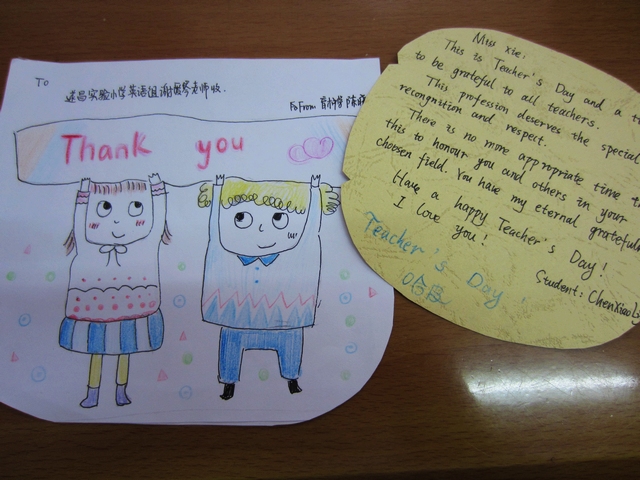 To
遂昌实验小学英语组谢爱琴老师收.
From
Thank you
Miss xie:
This is Teacher's Day and a
to be grateful to all teachers.
This profession deserves the special
recognition and respect.
There is no more appropriate time
this to honour you and others in your
chosen field. You have my eternal
Have a happy Teacher's Day!
I love you!
Teacher's Day!
Student: